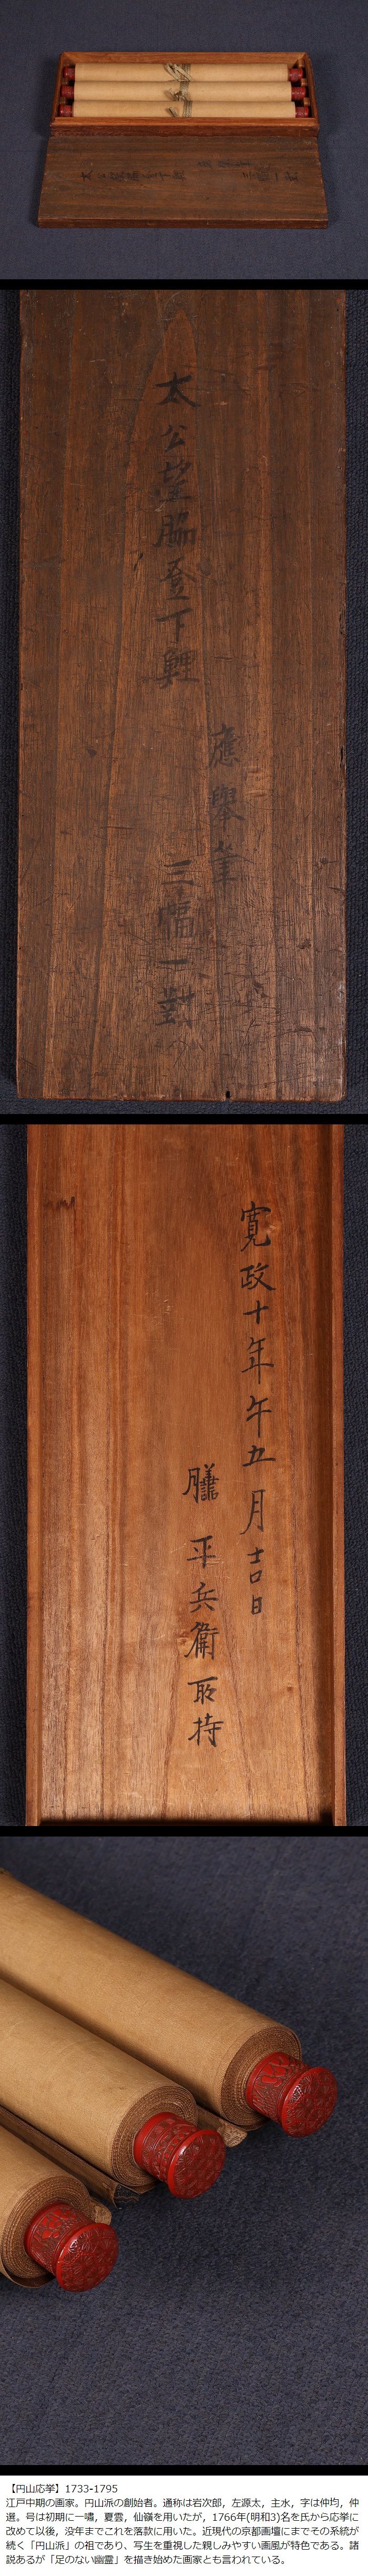 太公望脇登下鯉
應舉筆
三幅一對
寛政十年午五月吉日
膳平兵衛取持
【円山応挙】1733-1795
江戸中期の画家。円山派の創始者。通称は岩次郎，左源太，主水，字は仲均，仲
選。号は初期に一嘯，夏雲，仙嶺を用いたが，1766年(明和3)名を氏から応挙に
改めて以後，没年までこれを落款に用いた。近現代の京都画壇にまでその系統が
続く「円山派」の祖であり、写生を重視した親しみやすい画風が特色である。諸
説あるが「足のない幽霊」を描き始めた画家とも言われている。